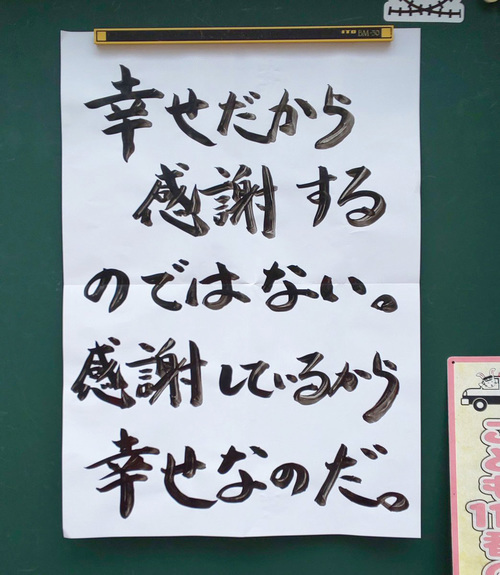 BM-50
幸せだから
感謝する
のではない。
感謝しているから
幸せなのだ。